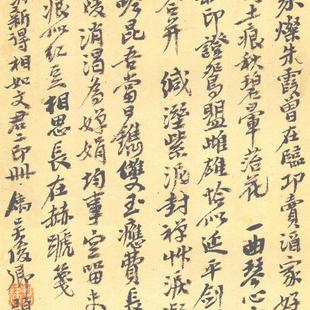 燦朱霞曾在臨邛賣酒家好
土痕秋碧暈落花 一曲琴心
印證鴛盟雌雄恰似延平劍
合并 緘湮紫泥封禪艸
昆吾當日鐫雙玉應費長
陵消渴為嬋娟均事空留
痕似紅豆相思長在赫蹏箋
新得相如文君二印冊 俊卿題